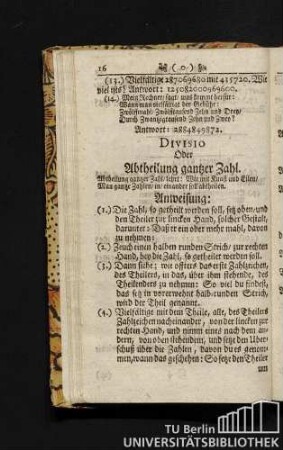 16 ❧ ( o ) ☙
(13.) Vielfältige 287069680 mit 435720. Wie
viel ists? Antwort: 125082000969600.
(14.) Merg Rechner, sagt, was kommt herfür:
Wann man vielfältigt der Gebühr:
Zwölfmahl Zwölftausend Zehn und Drey
Durch Zwanzigtausend Zehn und Zwey?
Antwort: 2884849872.
DIVISIO
Oder
Abtheilung gantzer Zahl.
Abtheilung gantzer Zahl, lehrt: Wie mit Kunst und Eilen,
Man gantze Zahlen, in einander soll abtheilen.
Anweisung:
(1.) Die Zahl, so getheilt werden soll, setz oben, und
den Theiler zur lincken Hand, solcher Gestalt,
darunter: Daß er ein oder mehr mahl, davon
zu nehmen.
(2.) Zeuch einen halben runden Strich, zur rechten
Hand, bey die Zahl, so getheilet werden soll.
(3.) Dann sihe: wie offt das erste Zahlzeichen,
des Theilers, in das, über ihm stehende, des
Theilenden zu nehmen: So viel du findest,
das setz in vorerwehnt halb-runden Strich,
wird der Theil genannt.
(4.) Vielfältige mit dem Theile, alle, des Theilers
Zahlzeichen nacheinander, von der lincken zur
rechten Hand, und nimm eines nach dem an-
dern, von oben stehenden, und setze den Uber-
schuß über die Zahlen, davon du es genom-
men, wann das geschehen: So setze den Theiler
um
TU Berlin
UNIVERSITÄTSBIBLIOTHEK